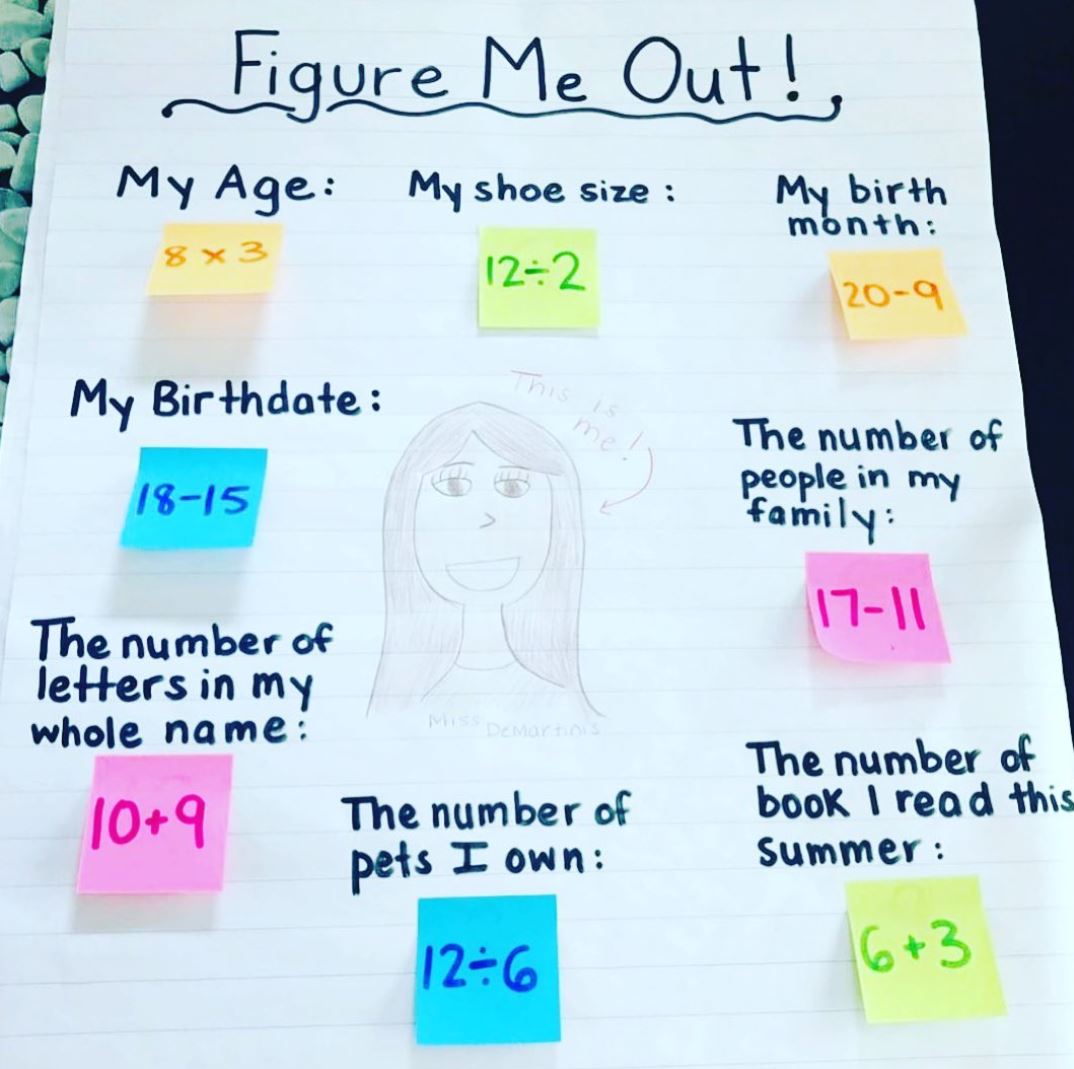 Figure Me Out!
My Age:
8 x 3
My shoe size:
12÷2
My birth
month:
20-9
My Birthdate:
18-15
This is
me!
The number of
people in my
family:
17-11
The number of
letters in my
whole name:
10+9
Miss DeMartinis
The number of
pets I own:
12÷6
The number of
book I read this
summer:
6+3